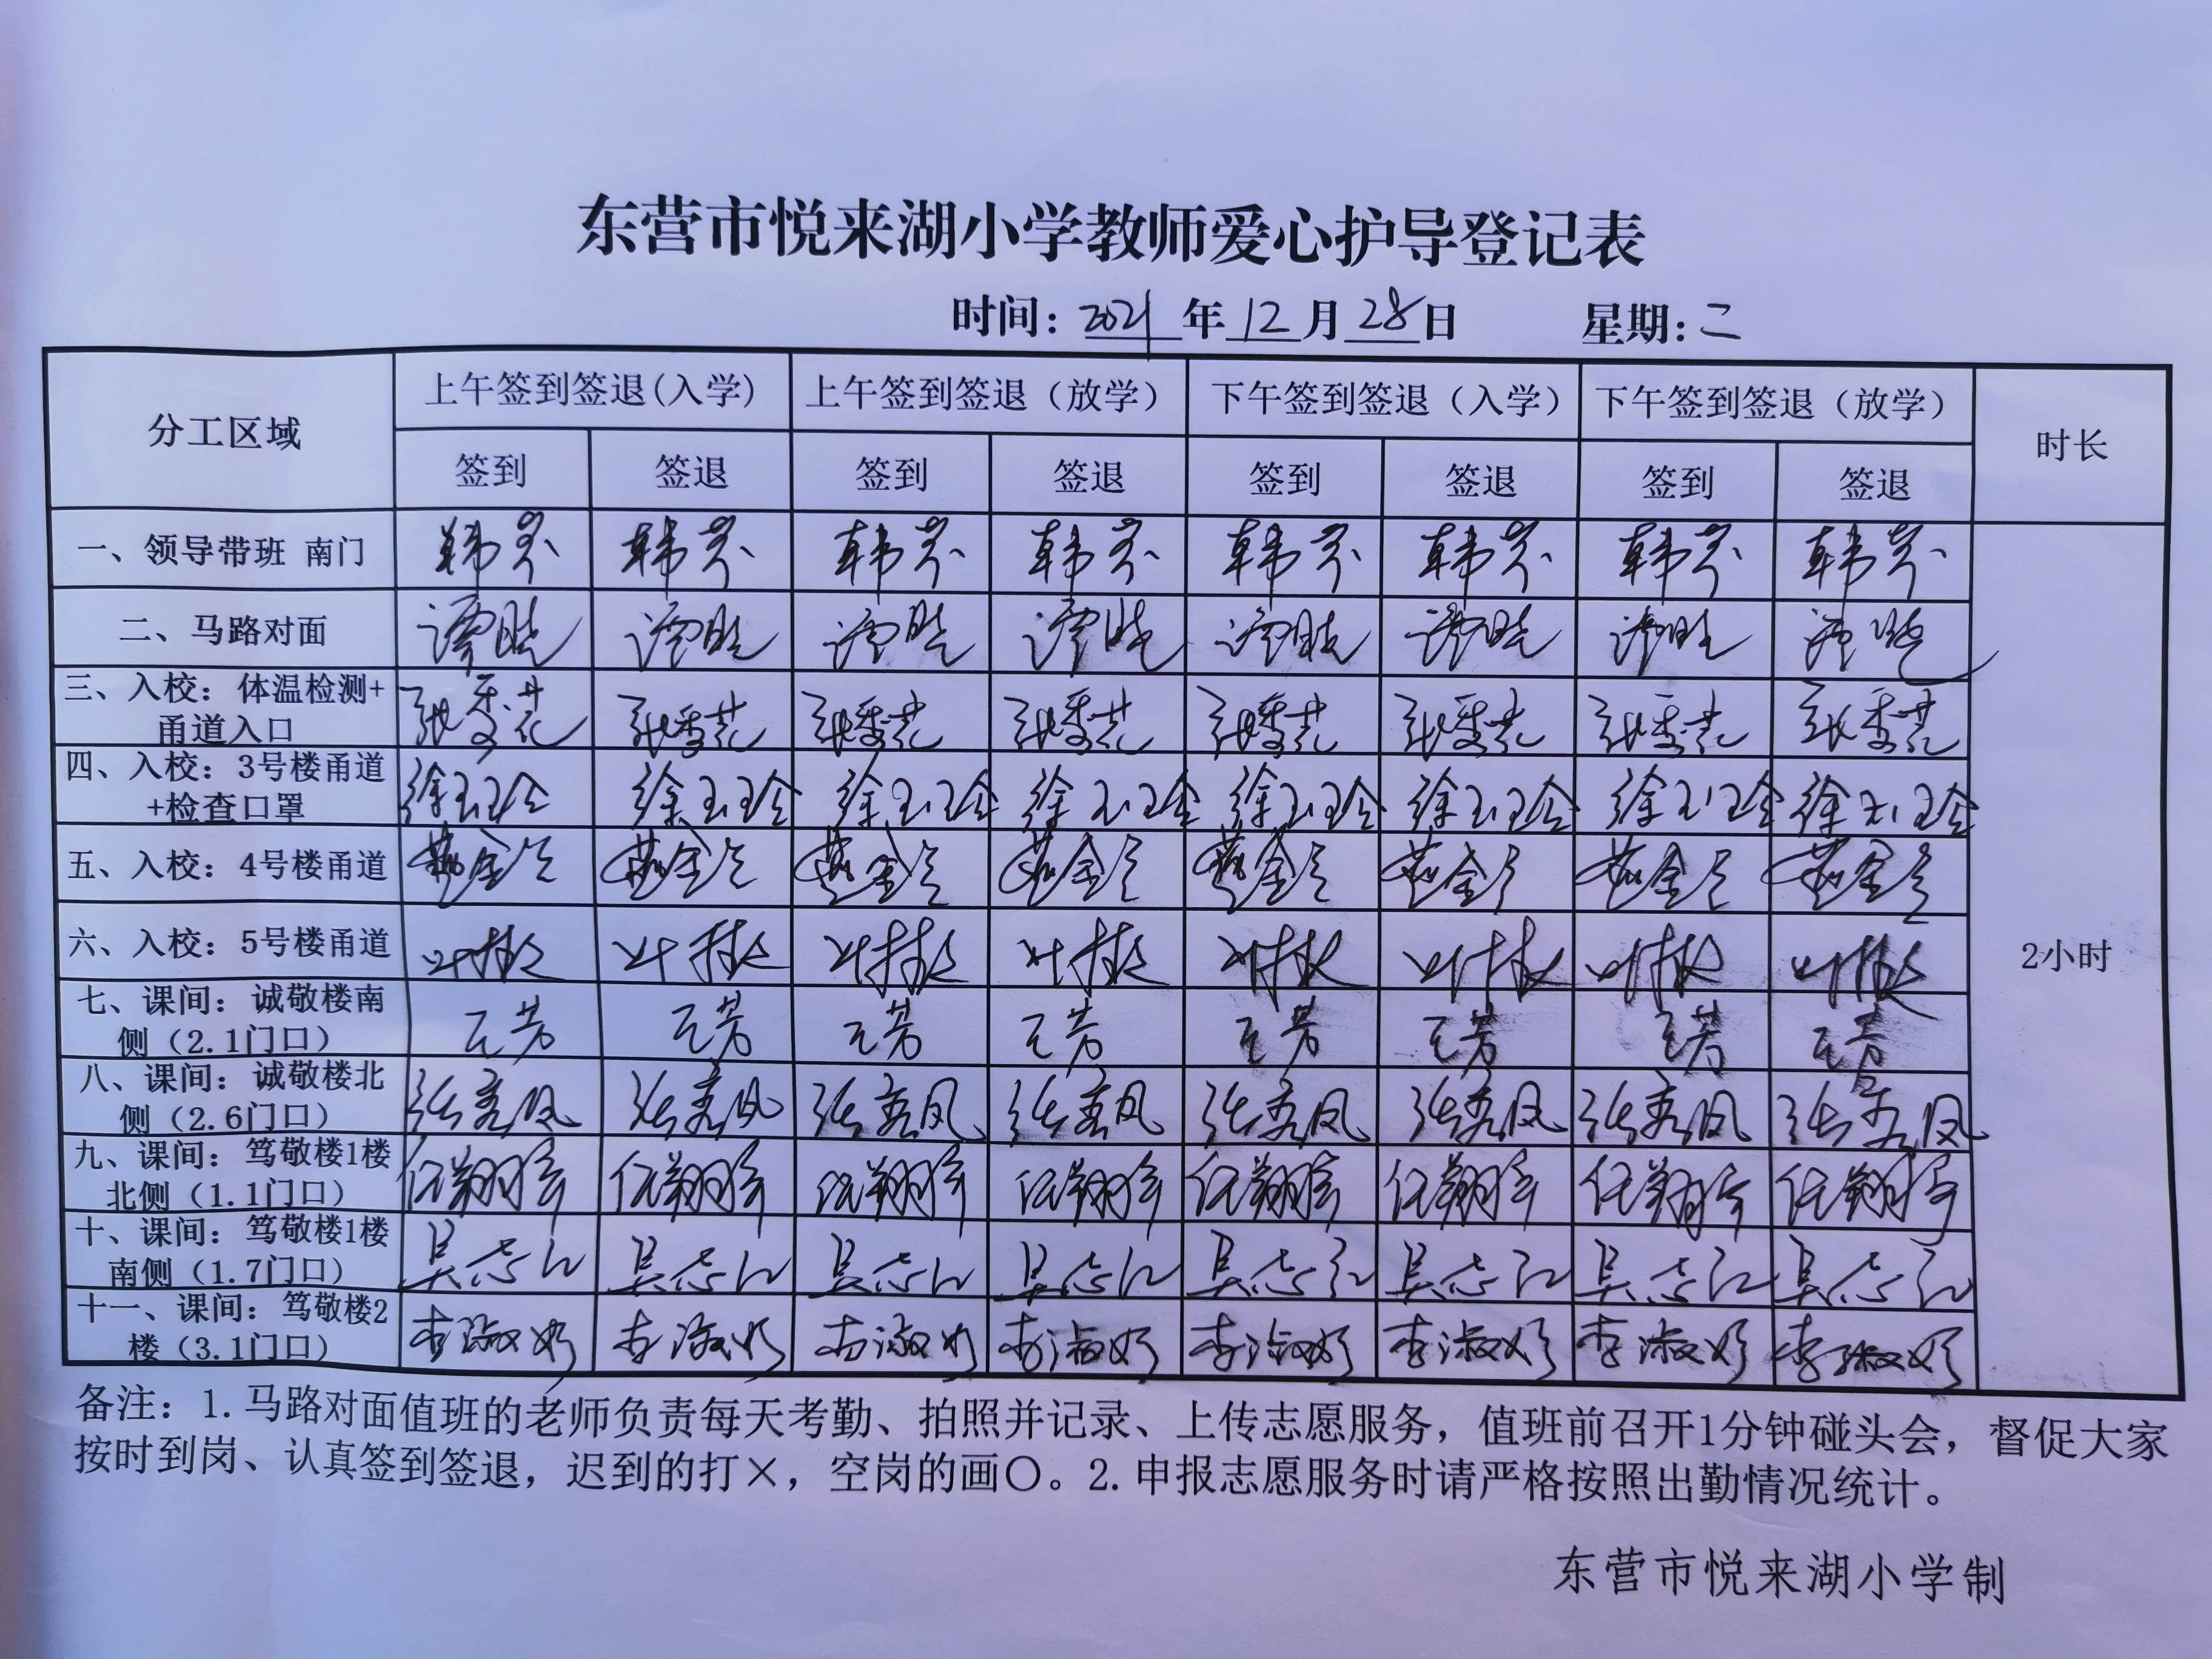 东营市悦来湖小学教师爱心护导登记表
时间：2021年12月28日 星期：二
分工区域 上午签到签退(入学) 上午签到签退（放学） 下午签到签退（入学） 下午签到签退（放学） 时长
签到 签退 签到 签退 签到 签退 签到 签退
一、领导带班 南门 韩 韩 韩 韩 韩 韩 韩 韩
二、马路对面 谭晓 谭晓 谭晓 谭晓 谭晓 谭晓 谭晓 谭晓
三、入校：体温检测+
甬道入口 张秀花 张秀花 张秀花 张秀花 张秀花 张秀花 张秀花 张秀花
四、入校：3号楼甬道
+检查口罩 徐玉玲 徐玉玲 徐玉玲 徐玉玲 徐玉玲 徐玉玲 徐玉玲 徐玉玲
五、入校：4号楼甬道
六、入校：5号楼甬道
2小时
七、课间：诚敬楼南
侧（2.1门口） 王芳 王芳 王芳 王芳 王芳 王芳 王芳 王芳
八、课间：诚敬楼北
侧（2.6门口） 张秀凤 张秀凤 张秀凤 张秀凤 张秀凤 张秀凤 张秀凤 张秀凤
九、课间：笃敬楼1楼
北侧（1.1门口） 任翔 任翔 任翔 任翔 任翔 任翔 任翔 任翔
十、课间：笃敬楼1楼
南侧（1.7门口） 吴志红 吴志红 吴志红 吴志红 吴志红 吴志红 吴志红 吴志红
十一、课间：笃敬楼2
楼（3.1门口） 李淑 李淑 李淑 李淑 李淑 李淑 李淑 李淑
备注：1.马路对面值班的老师负责每天考勤、拍照并记录、上传志愿服务，值班前召开1分钟碰头会，督促大家
按时到岗、认真签到签退，迟到的打×，空岗的画〇。2.申报志愿服务时请严格按照出勤情况统计。
东营市悦来湖小学制